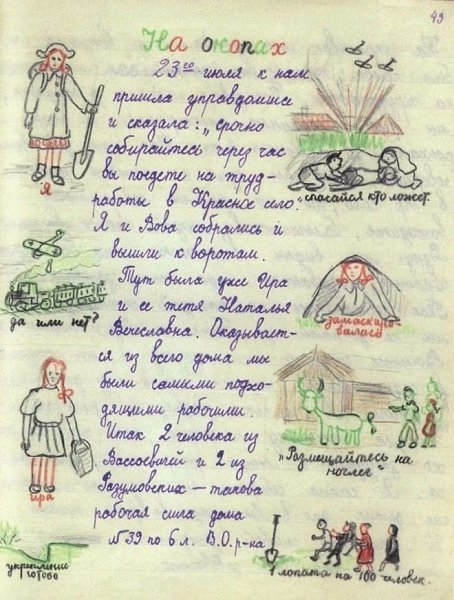 49
На окопах
23го июля к нам
пришла управдомше
и сказала: „срочно
собирайтесь через час
вы поедете на труд-
работы в Красное село.
Я и Вова собрались и
вышли к воротам.
Тут была уже Ира
и ее тетя Наталья
Вечеславна. Оказывает-
ся из всего дома мы
были самыми подхо-
дящими рабочими.
Итак 2 человека из
и 2 из
Разумовских — такова
рабочая сила дома
№ 39 по 6 л. В.О. р-на
Я
да или нет?
ира
укрепление
готово
„спасайся кто может.
замаскиро-
валась
„Размещайтесь на
ночлег"
1 лопата на 100 человек.